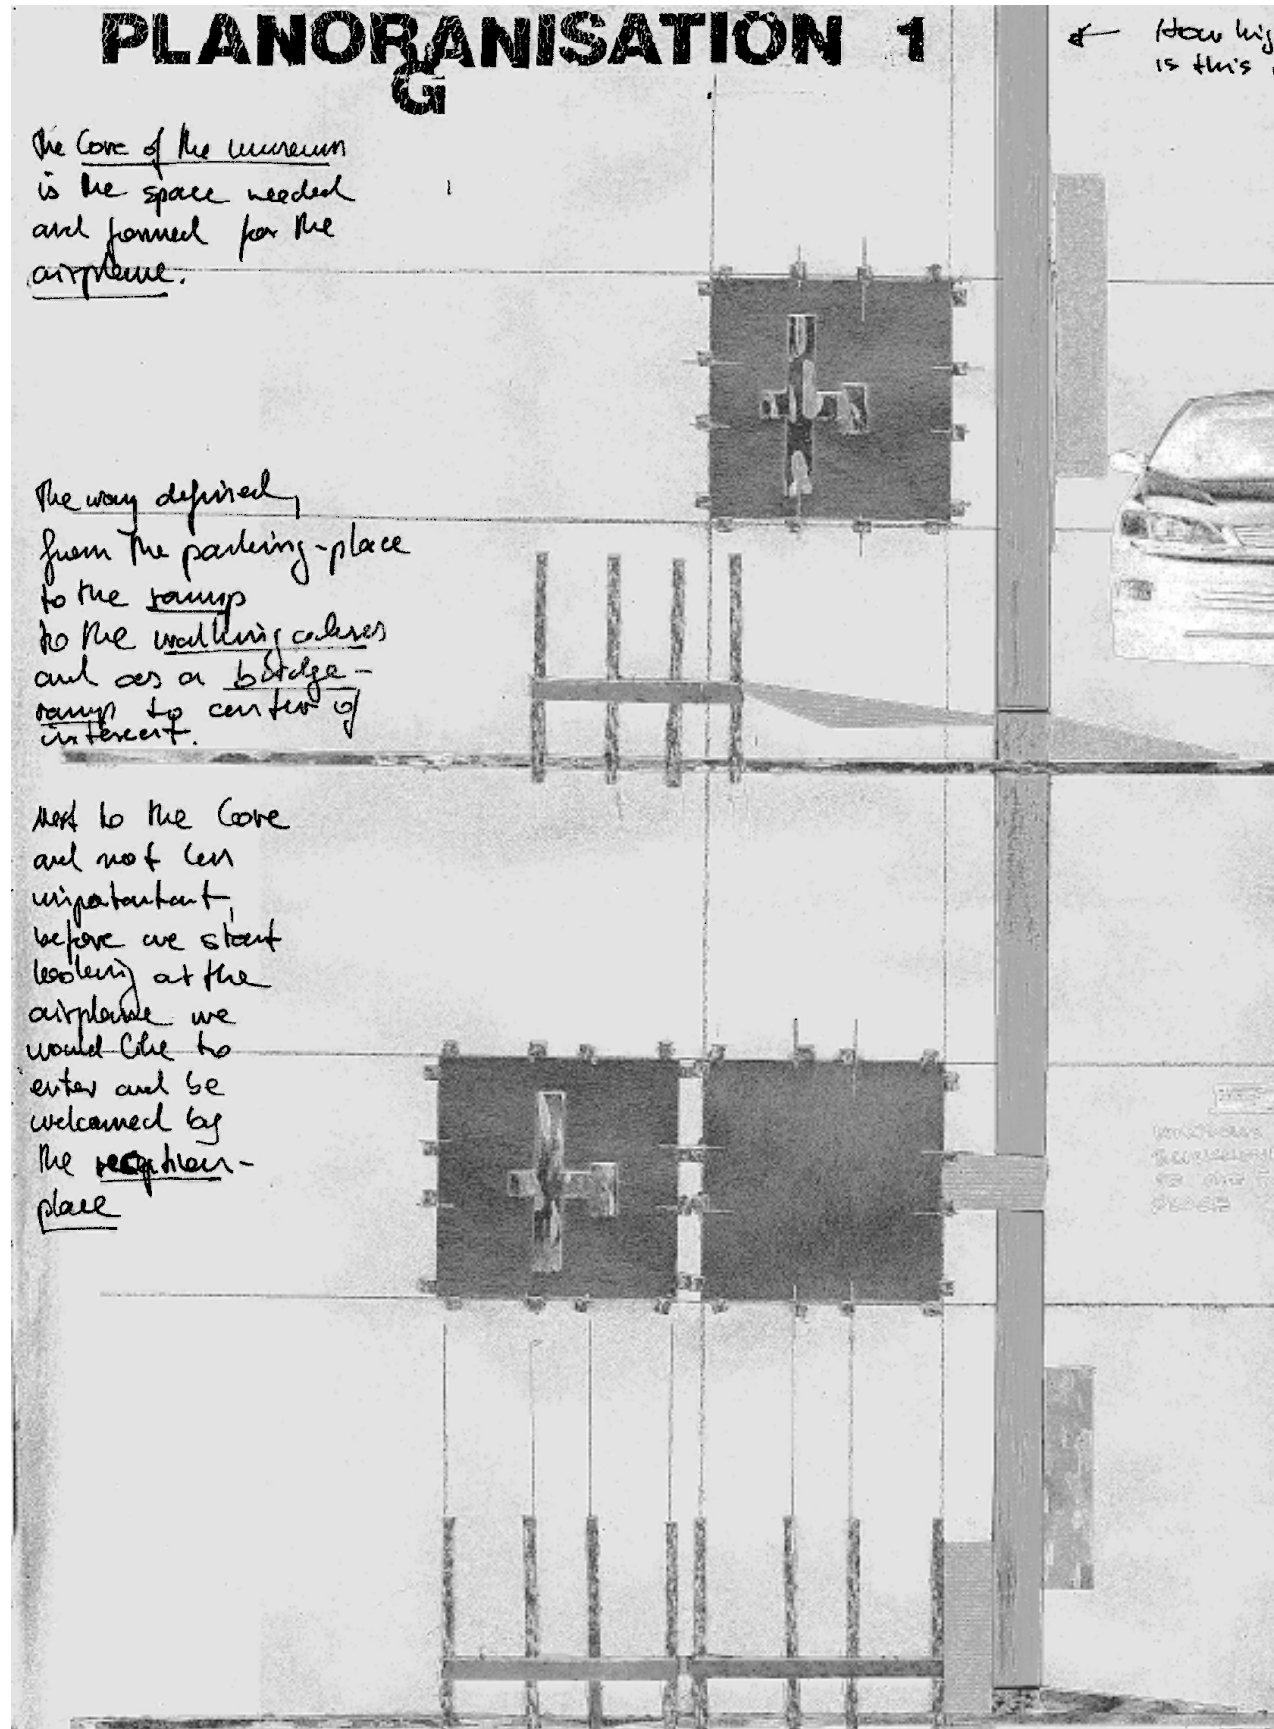 PLANORANISATION 1
G
← How hig
is this
the Core of the museum
is the space needed
and formed for the
airplane.
the way defined,
from the parking-place
to the ramp
to the walking
and as a bridge-
ramp to center of
interest.
next to the Core
and not less
impotantant,
before we start
looking at the
airplane we
would like to
enter and be
welcomed by
the reception-
place